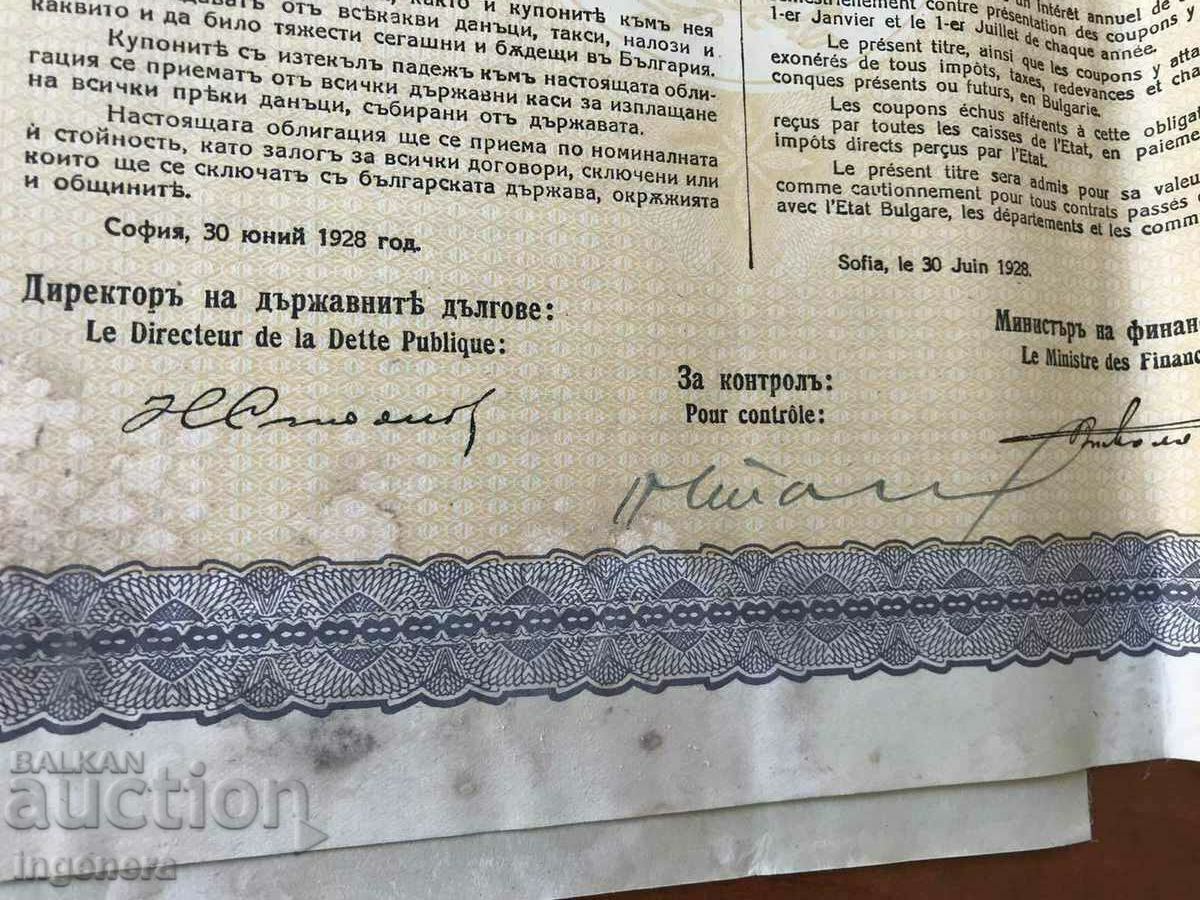 каквито и да било тяжести сегашни и бѫдещи въ България.
Купонитѣ съ изтекълъ падежъ къмъ настоящата обли-
гация се приематъ отъ всички държавни каси за изплащане
на всички прѣки данъци, събирани отъ държавата.
Настоящата облигация ще се приема по номиналната
ѝ стойность, като залогъ за всички договори, сключени или
които ще се сключатъ съ българската държава, окрѫжията
и общинитѣ.
София, 30 юний 1928 год.
un intérêt annuel de
contre présentation des coupons y
1-er Janvier et le 1-er Juillet de chaque année.
Le présent titre, ainsi que les coupons y atta
exonérés de tous impôts, taxes, redevances et cha
conques présents ou futurs, en Bulgarie.
Les coupons échus afférents à cette obligat
reçus par toutes les caisses de l'Etat, en paieme
impôts directs perçus par l'Etat.
Le présent titre sera admis pour sa valeu
comme cautionnement pour tous contrats passés
avec l'Etat Bulgare, les départements et les comm
Sofia, le 30 Juin 1928.
Директоръ на държавнитѣ дългове:
Le Directeur de la Dette Publique:
За контролъ:
Pour contrôle:
Министъръ на финан
Le Ministre des Financ
BALKAN
auction
ingénera